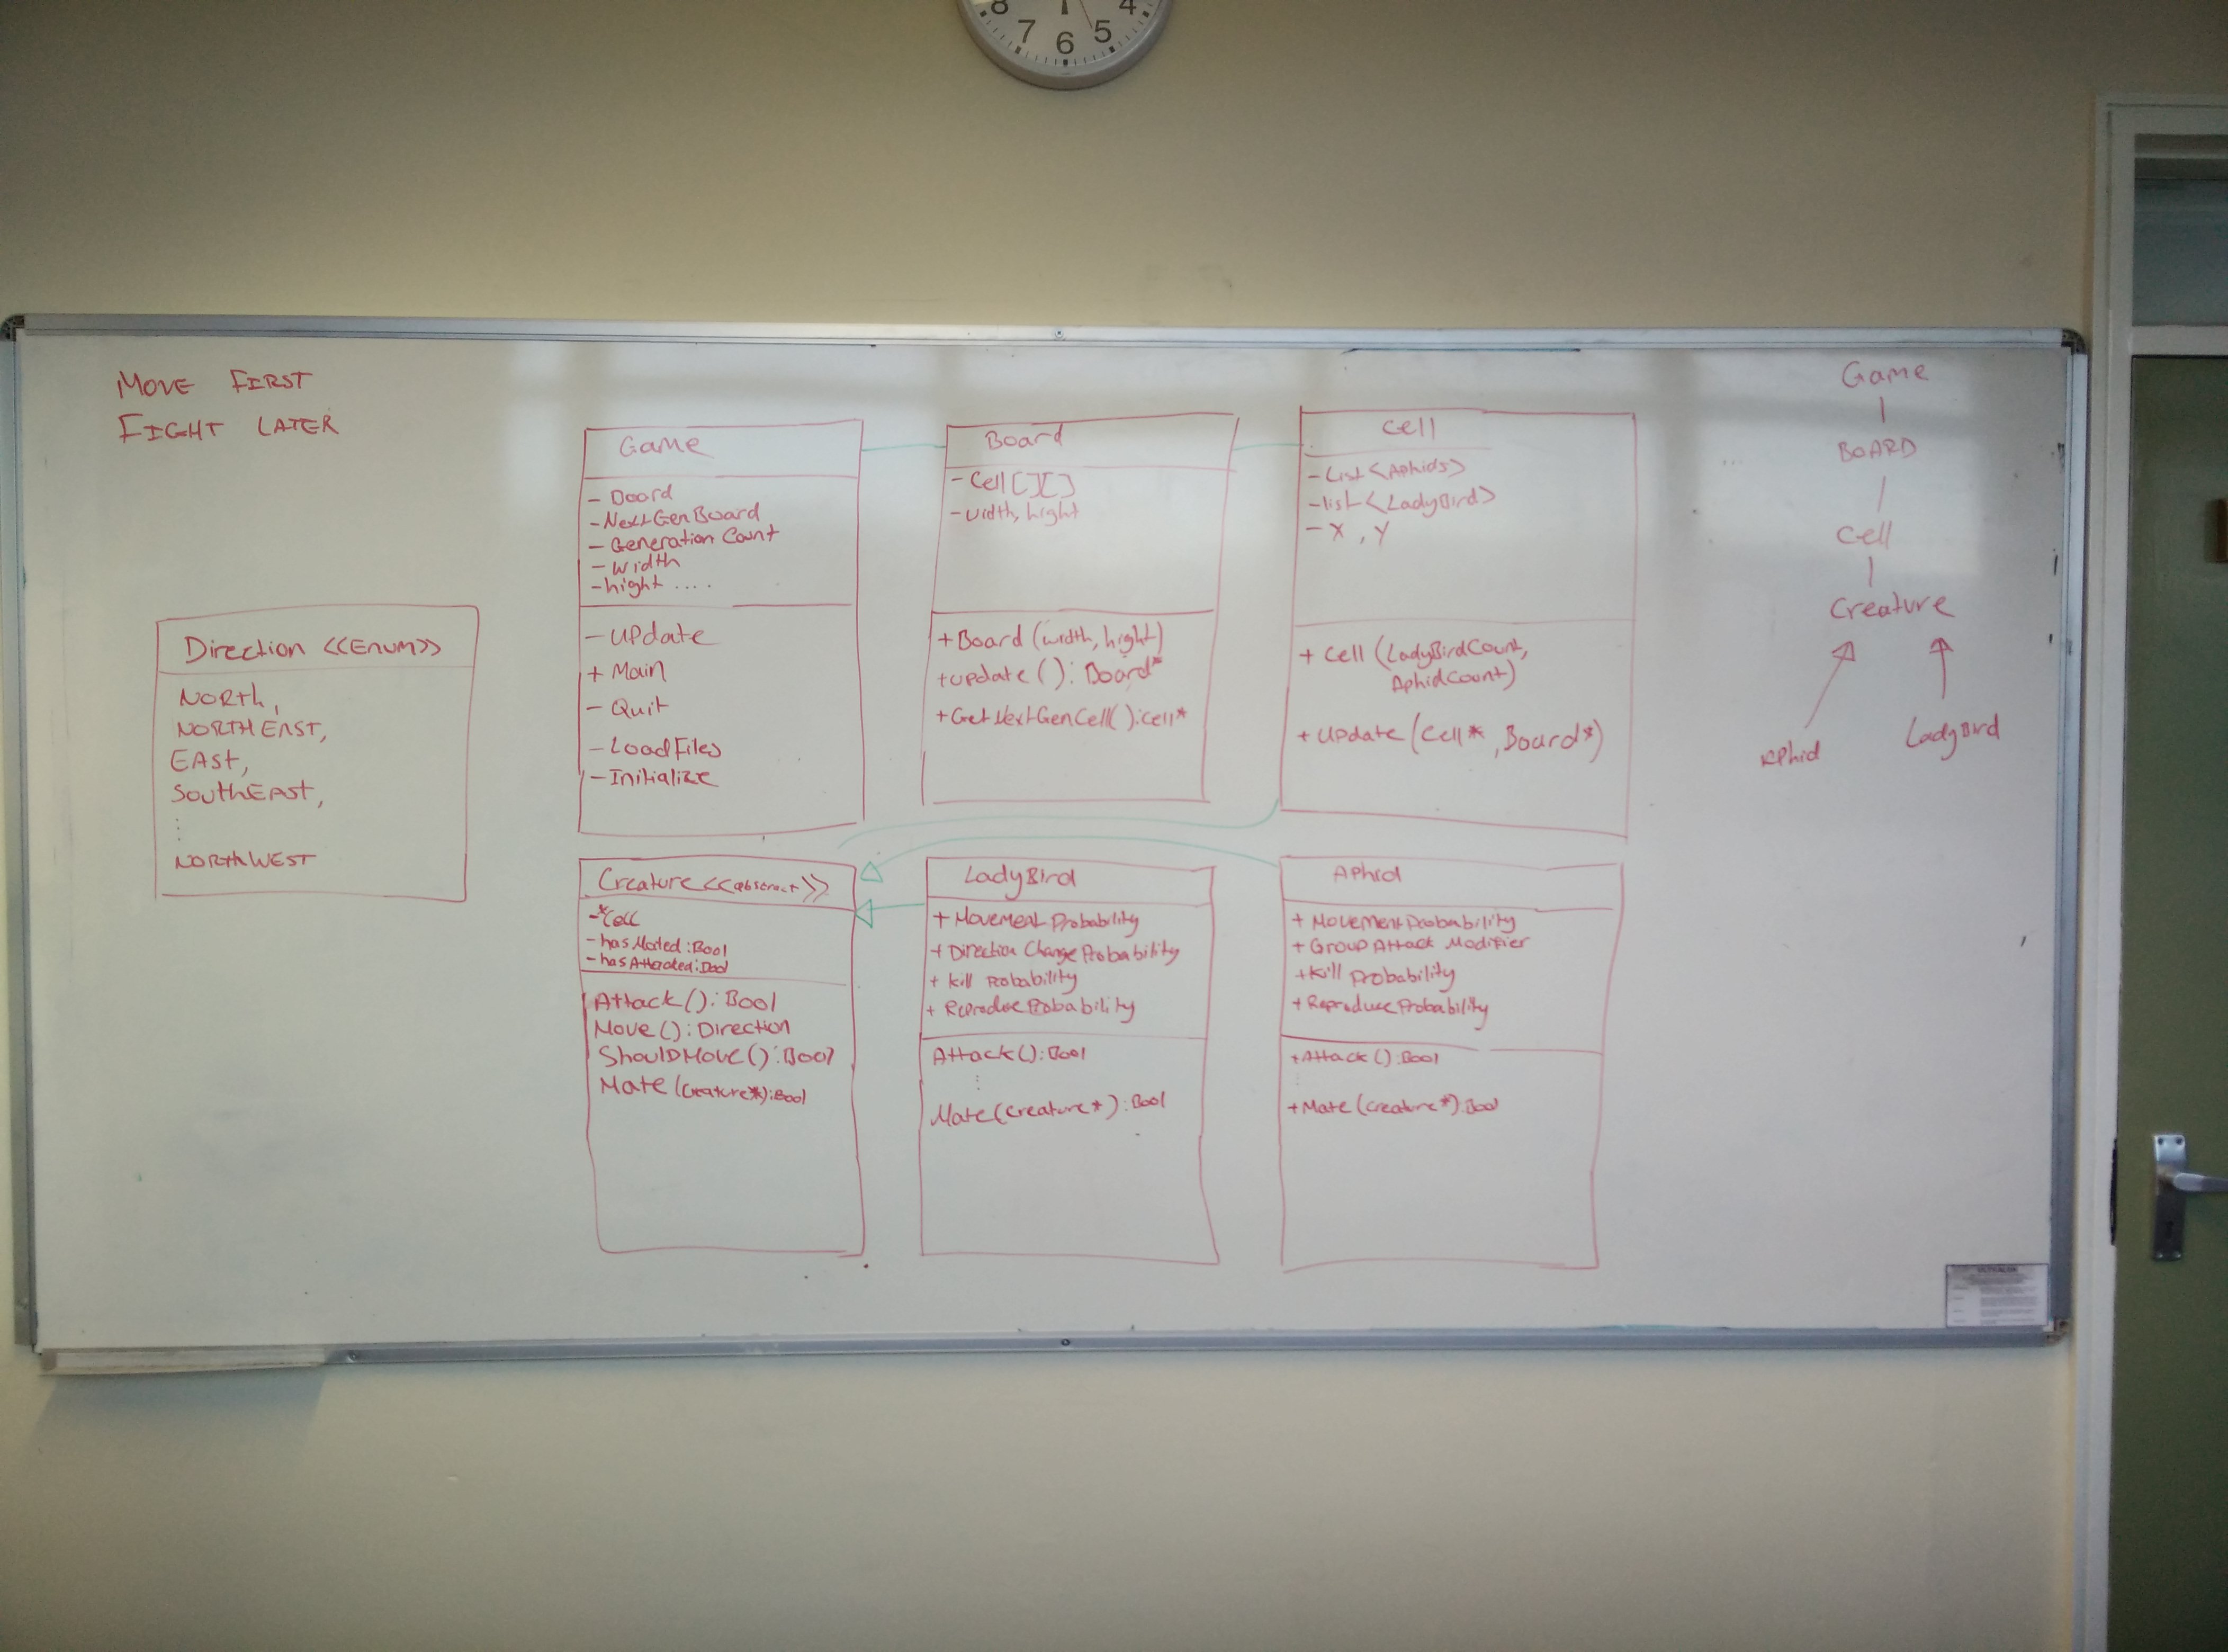 8 7 6 5 4
MOVE FIRST
FIGHT LATER
Direction <<Enum>>
NORTH,
NORTHEAST,
EAST,
SOUTHEAST,
NORTHWEST
Game
- Board
- NextGenBoard
- Generation Count
- Width
- hight ....
- Update
+ Main
- Quit
- LoadFiles
- Initialize
Board
- Cell[][]
- width, hight
+ Board (width, hight)
+ update(): Board*
+ GetNextGenCell():cell*
Cell
- List<Aphids>
- list<LadyBird>
- X, Y
+ Cell (LadyBirdCount,
AphidCount)
+ Update (Cell*, Board*)
Creature <<abstract>>
- *Cell
- hasMated:Bool
- hasAttacked:Bool
Attack(): Bool
Move(): Direction
ShouldMove(): Bool
Mate (Creature*):Bool
LadyBird
+ Movement Probability
+ Direction Change Probability
+ Kill Probability
+ Reproduce Probability
Attack(): Bool
Mate (Creature*): Bool
Aphid
+ Movement Probability
+ Group Attack Modifier
+ Kill Probability
+ Reproduce Probability
+ Attack(): Bool
+ Mate (Creature*): Bool
Game
BOARD
Cell
Creature
Aphid
LadyBird